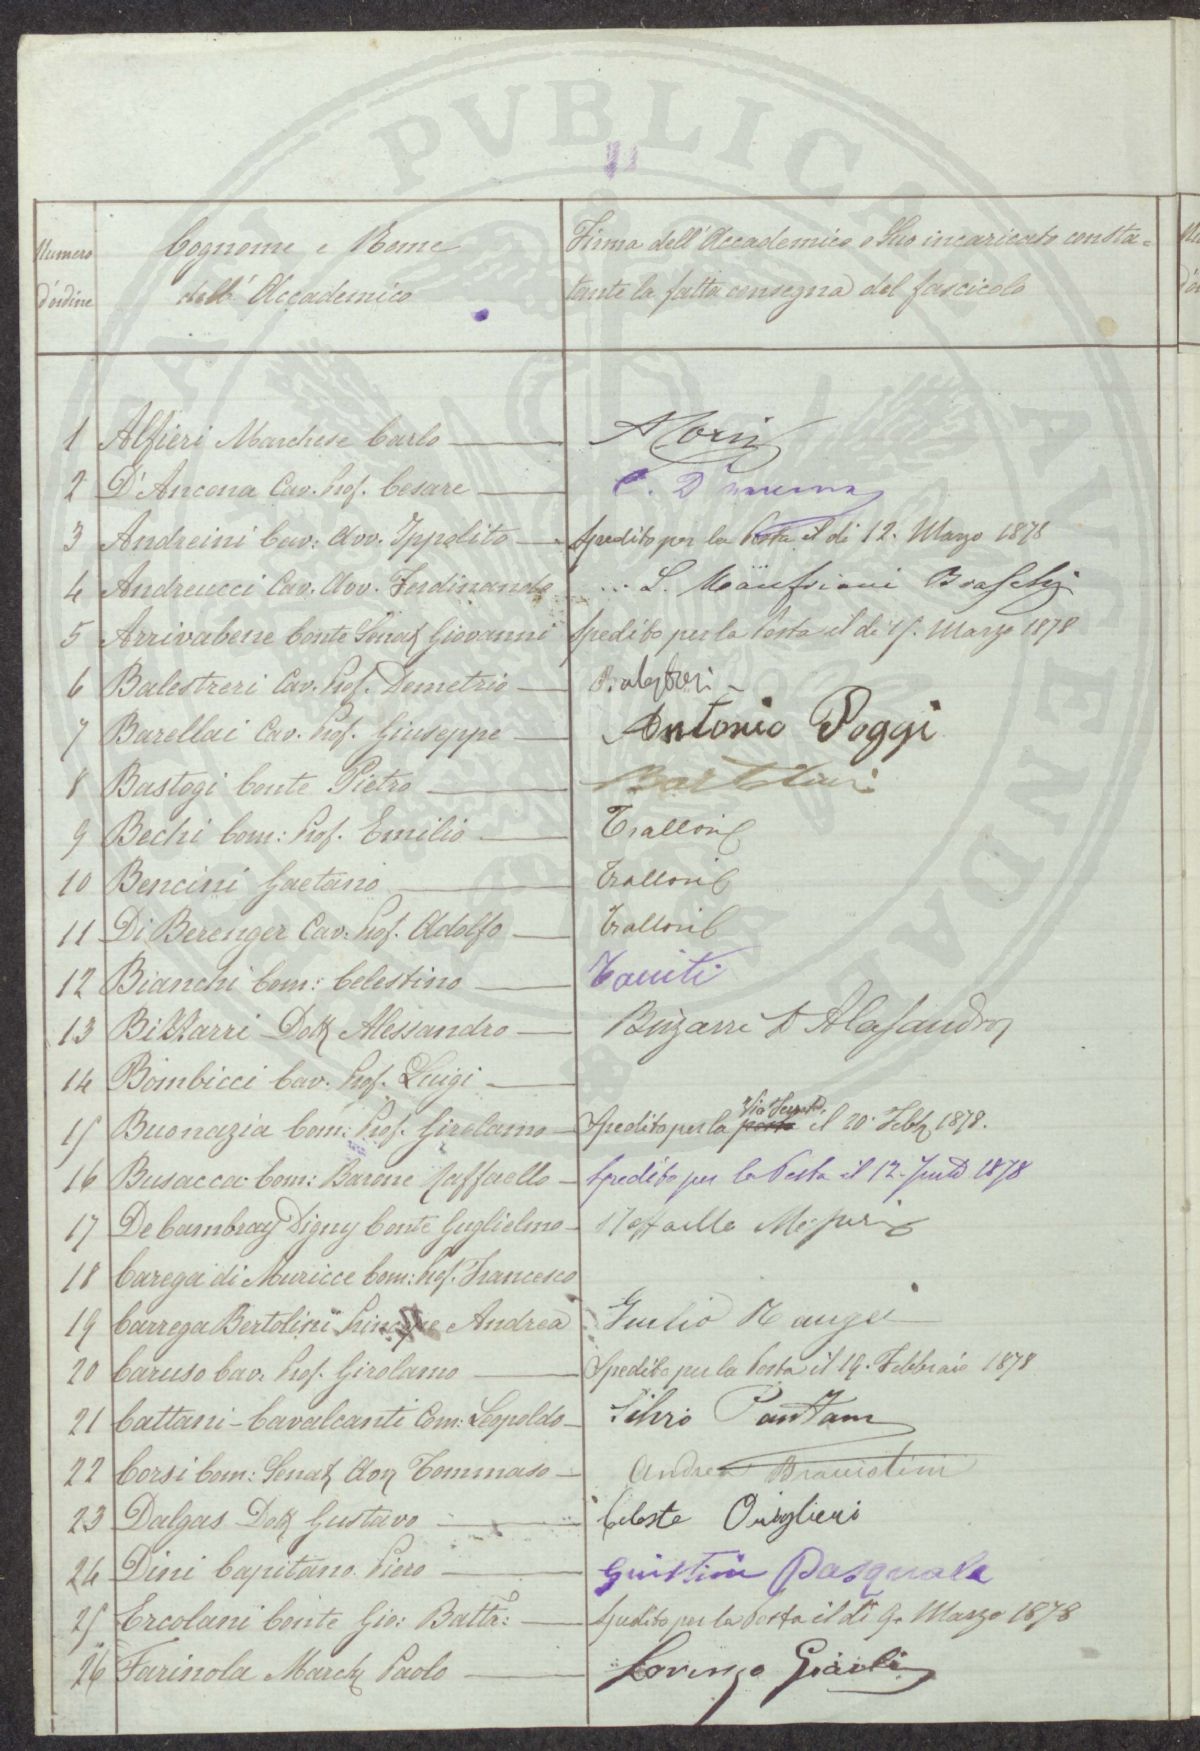 Numero d'ordine
Cognome e Nome
dell'Accademico
Firma dell'Accademico o Suo incaricato consta=
tante la fatta consegna del fascicolo
1 Alfieri Marchese Carlo
2 D'Ancona Cav. Prof. Cesare C. D'Ancona
3 Andreini Cav: Avv. Ippolito Spedito per la Posta il di 12. Marzo 1878
4 Andreucci Cav. Avv. Ferdinando L. Manfriani Braschi
5 Arrivabene Conte Senat. Giovanni Spedito per la Posta il di 15. Marzo 1878
6 Balestreri Cav. Prof. Demetrio
7 Barellai Cav. Prof. Giuseppe Antonio Poggi
8 Bastogi Conte Pietro
9 Bechi Com: Prof. Emilio Tralloni
10 Bencini Gaetano Tralloni
11 Di Berenger Cav: Prof. Adolfo Tralloni
12 Bianchi Com: Celestino
13 Bizzarri Dott. Alessandro Bizzarri D Alesandro
14 Bombicci Cav. Prof. Luigi
15 Buonazia Com: Prof. Girolamo Spedito per la posta il 20. Febb. 1878.
16 Busacca Com: Barone Raffaello Spedito per la Posta il 12. 1878
17 De Cambray Digny Conte Guglielmo Raffaello
18 Carega di Muricce Com: Prof. Francesco
19 Carrega Bertolini Principe Andrea Giulio
20 Caruso Cav. Prof. Girolamo Spedito per la Posta il 19. Febbraio 1878
21 Cattani-Cavalcanti Com: Leopoldo Silvio
22 Corsi Com: Senat. Avv. Tommaso Andrea
23 Dalgas Dott. Gustavo Celeste
24 Dini Capitano Piero Giustini Pasquale
25 Ercolani Conte Gio: Batta: Spedito per la Posta il di 9. Marzo 1878
26 Farinola March. Paolo Lorenzo